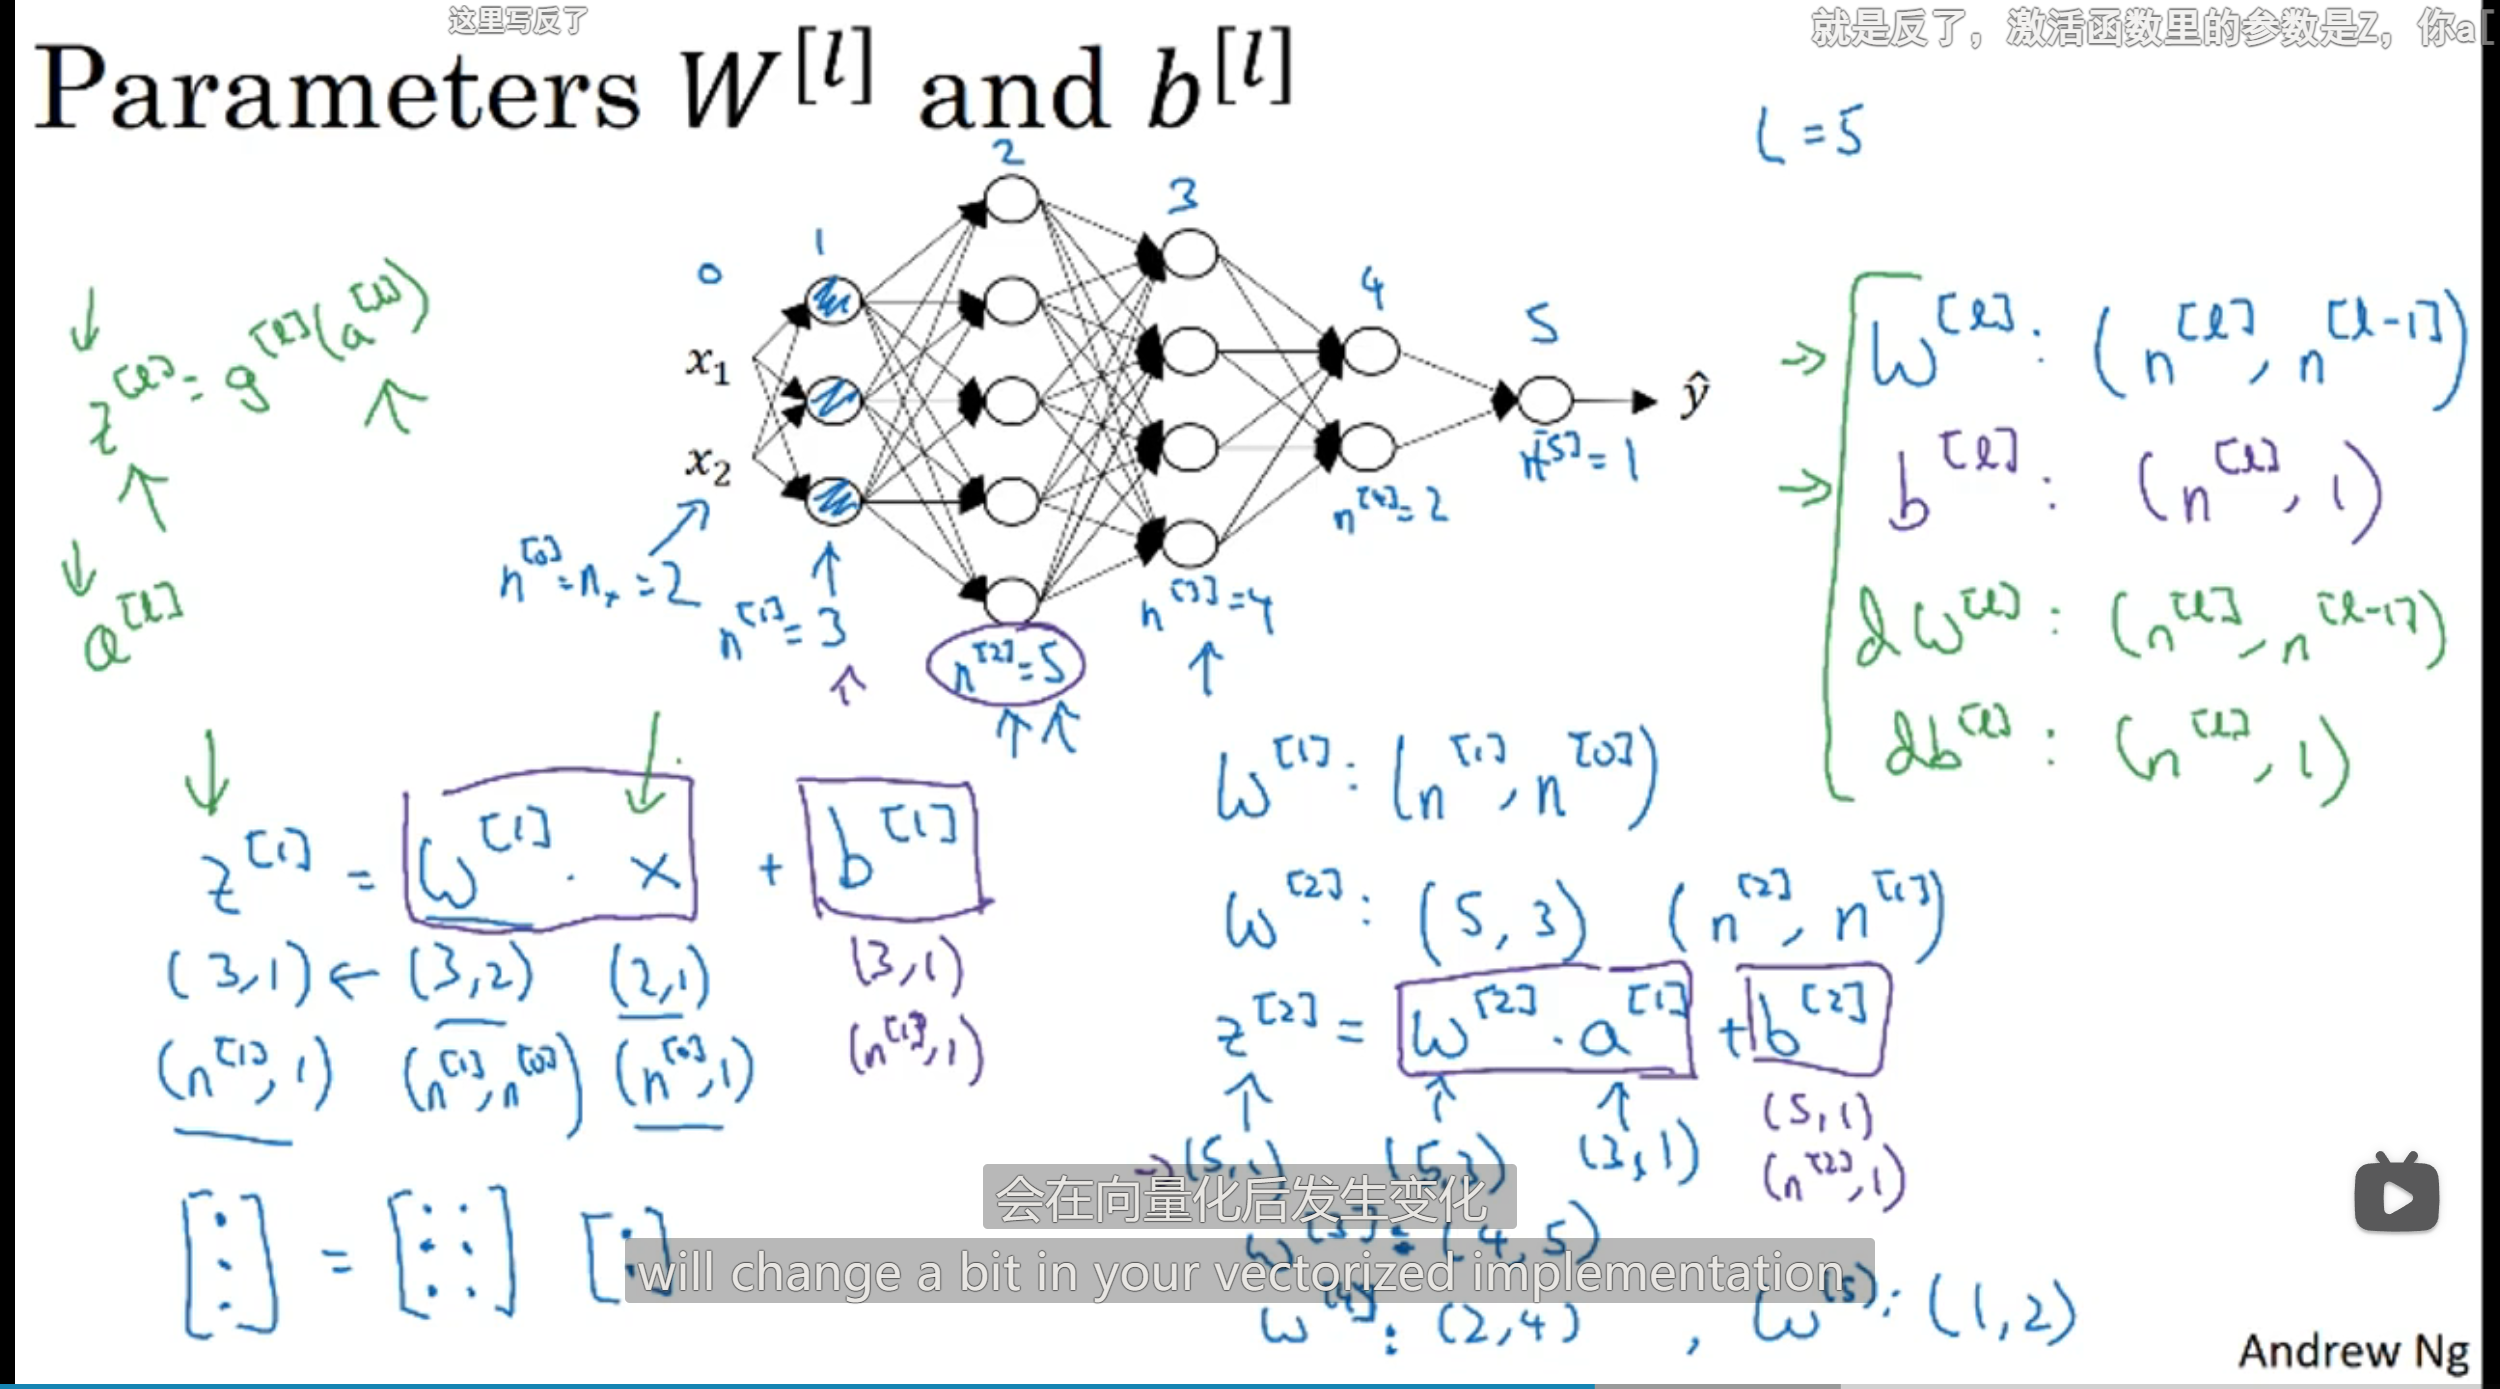 这里写反了
就是反了，激活函数里的参数是Z，你a[
Parameters W^[l] and b^[l]
L = 5
0 1 2 3 4 5
z^[l] = g^[l](a^[l])
a^[l]
x₁
x₂
ŷ
n^[0] = nₓ = 2
n^[1] = 3
n^[2] = 5
n^[3] = 4
n^[4] = 2
n^[5] = 1
W^[l] : (n^[l], n^[l-1])
b^[l] : (n^[l], 1)
dW^[l] : (n^[l], n^[l-1])
db^[l] : (n^[l], 1)
z^[1] = W^[1] · x + b^[1]
(3,1) ← (3,2) (2,1) (3,1)
(n^[1], 1) (n^[1], n^[0]) (n^[0], 1) (n^[1], 1)
W^[1] : (n^[1], n^[0])
W^[2] : (5, 3) (n^[2], n^[1])
z^[2] = W^[2] · a^[1] + b^[2]
→ (5,1) (5,3) (3,1) (5,1)
(n^[2], 1)
W^[3] : (4,5)
W^[4] : (2,4) , W^[5] : (1,2)
会在向量化后发生变化
will change a bit in your vectorized implementation
Andrew Ng